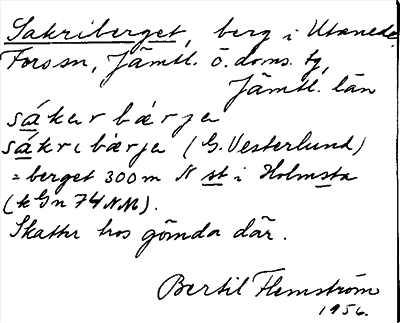 Sakriberget, berg i Utanede,
Fors sn, Jämtl. ö. doms. tg,
Jämtl. län
sákarbärja
sákribärja (G. Vesterlund)
= berget 300 m N st i Holmsta
(kGn 74 NM).
Skatter hos gömda där.
Bertil Flemström
1956.